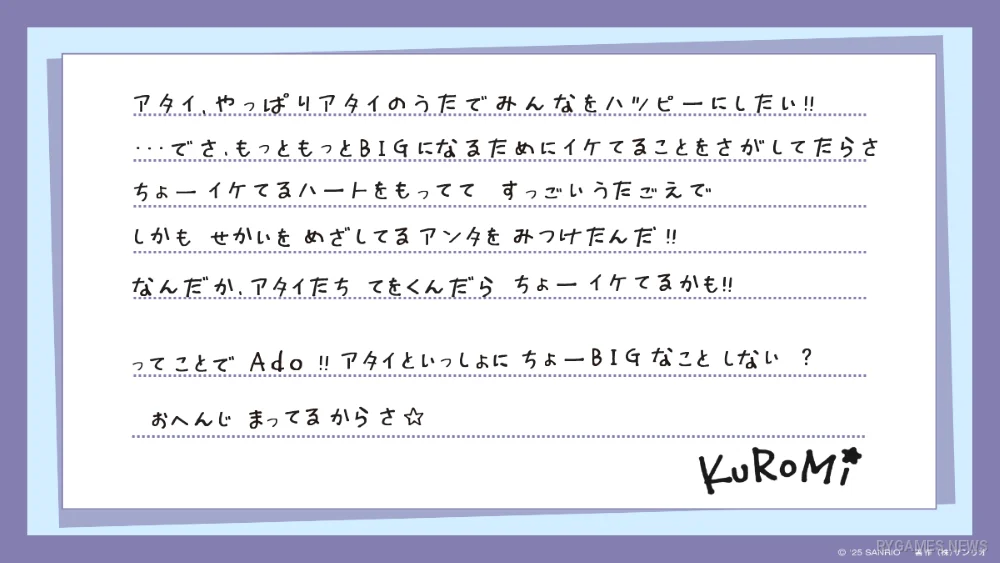 アタイ、やっぱりアタイのうたでみんなをハッピーにしたい!!
・・・でさ、もっともっとBIGになるためにイケてることをさがしてたらさ
ちょーイケてるハートをもってて すっごいうたごえで
しかも せかいを めざしてるアンタを みつけたんだ!!
なんだか、アタイたち てをくんだら ちょーイケてるかも!!
ってことで Ado !! アタイといっしょに ちょーBIGなこと しない ?
おへんじ まってるからさ☆
KUROMi
© '25 SANRIO 著作 (株)サンリオ
RYGAMES NEWS